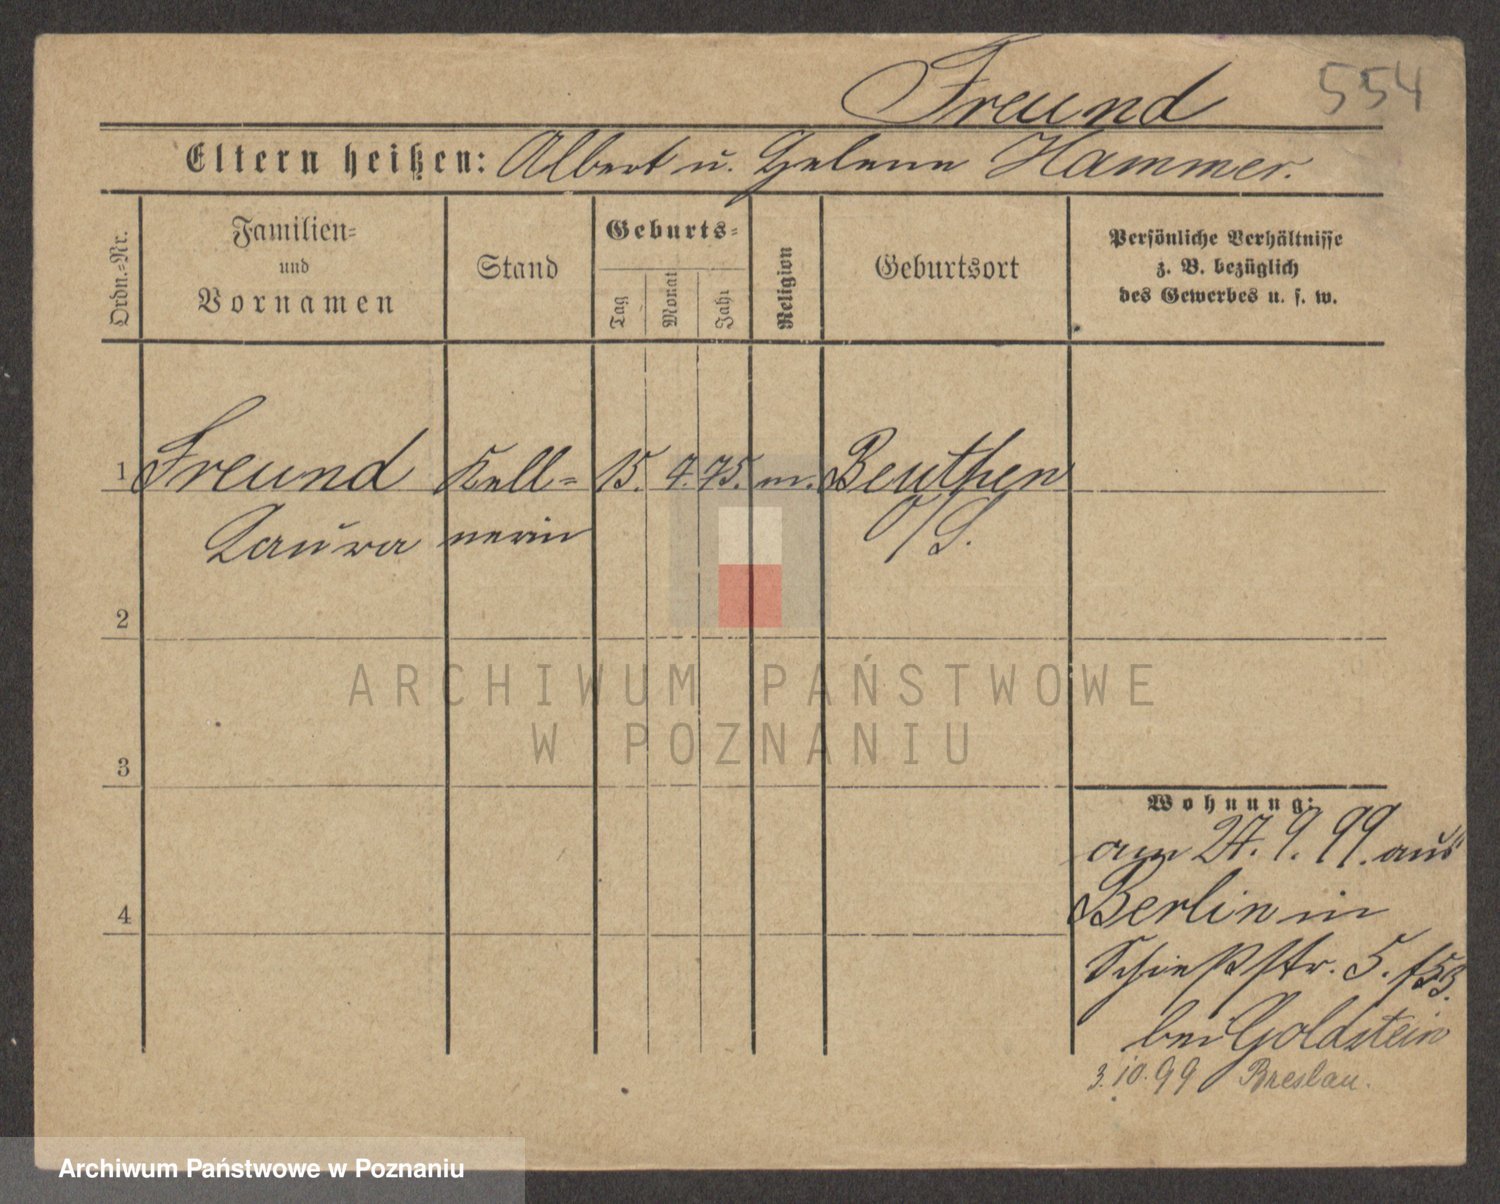 Freund
554
Eltern heißen: Albert u. Helene Hammer.
Ordn.=Nr.
Familien=
und
Vornamen
Stand
Geburts=
Tag
Monat
Jahr
Religion
Geburtsort
Persönliche Verhältnisse
z. B. bezüglich
des Gewerbes u. s. w.
1 Freund Kell= 15. 4. 75. m. Beuthen
Laura nerin O/S.
2
3
4
Wohnung:
am 27. 9. 99. aus
Berlin in
Schießstr. 5.
bei Goldstein
3.10.99 Breslau.
ARCHIWUM PAŃSTWOWE
W POZNANIU
Archiwum Państwowe w Poznaniu